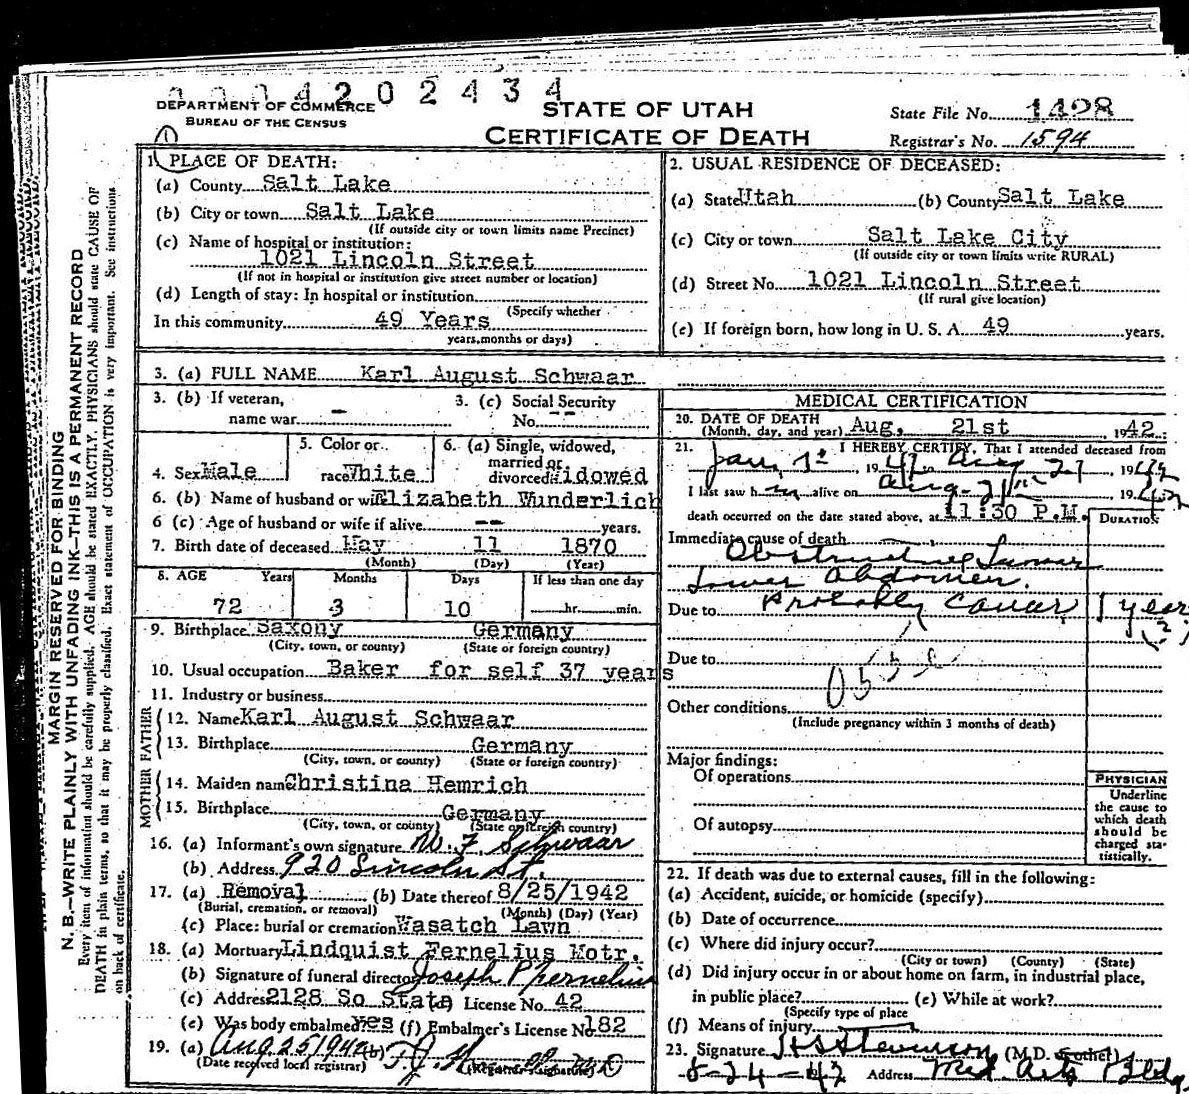 0004202434
DEPARTMENT OF COMMERCE
BUREAU OF THE CENSUS
STATE OF UTAH
CERTIFICATE OF DEATH
State File No. 1428
Registrar's No. 1594
MARGIN RESERVED FOR BINDING
N. B.—WRITE PLAINLY WITH UNFADING INK—THIS IS A PERMANENT RECORD
Every item of information should be carefully supplied. AGE should be stated EXACTLY. PHYSICIANS should state CAUSE OF
DEATH in plain terms, so that it may be properly classified. Exact statement of OCCUPATION is very important. See instructions
on back of certificate.
1. PLACE OF DEATH:
(a) County Salt Lake
(b) City or town Salt Lake
(If outside city or town limits name Precinct)
(c) Name of hospital or institution:
1021 Lincoln Street
(If not in hospital or institution give street number or location)
(d) Length of stay: In hospital or institution
(Specify whether
In this community 49 Years
years, months or days)
2. USUAL RESIDENCE OF DECEASED:
(a) State Utah (b) County Salt Lake
(c) City or town Salt Lake City
(If outside city or town limits write RURAL)
(d) Street No. 1021 Lincoln Street
(If rural give location)
(e) If foreign born, how long in U. S. A. 49 years.
3. (a) FULL NAME Karl August Schwaar
3. (b) If veteran,
name war -
3. (c) Social Security
No. --
4. Sex Male
5. Color or
race White
6. (a) Single, widowed,
married or
divorced Widowed
6. (b) Name of husband or wife Elizabeth Wunderlich
6 (c) Age of husband or wife if alive -- years.
7. Birth date of deceased May 11 1870
(Month) (Day) (Year)
8. AGE Years Months Days If less than one day
72 3 10 hr. min.
9. Birthplace Saxony Germany
(City, town, or county) (State or foreign country)
10. Usual occupation Baker for self 37 years
11. Industry or business
FATHER
12. Name Karl August Schwaar
13. Birthplace Germany
(City, town, or county) (State or foreign country)
MOTHER
14. Maiden name Christina Hemrich
15. Birthplace Germany
(City, town, or county) (State or foreign country)
16. (a) Informant's own signature W. F. Schwaar
(b) Address 920 Lincoln St.
17. (a) Removal (b) Date thereof 8/25/1942
(Burial, cremation, or removal) (Month) (Day) (Year)
(c) Place: burial or cremation Wasatch Lawn
18. (a) Mortuary Lindquist Fernelius Motr.
(b) Signature of funeral director Joseph P Fernelius
(c) Address 2128 So State (d) License No. 42
(e) Was body embalmed? Yes (f) Embalmer's License No. 182
19. (a) Aug 25 1942 (b)
(Date received local registrar) (Registrar's signature)
MEDICAL CERTIFICATION
20. DATE OF DEATH
(Month, day, and year) Aug. 21st, 1942.
21. I HEREBY CERTIFY, That I attended deceased from
Jan. 1st, 1942 to Aug 21, 1942
I last saw him alive on Aug-21st, 1942
death occurred on the date stated above, at 11:30 P.M.
DURATION
Immediate cause of death
Obstructive Tumor
Lower Abdomen.
Due to Probably Cancer 1 year
(?)
Due to
Other conditions
(Include pregnancy within 3 months of death)
Major findings:
Of operations
Of autopsy
PHYSICIAN
Underline
the cause to
which death
should be
charged sta-
tistically.
22. If death was due to external causes, fill in the following:
(a) Accident, suicide, or homicide (specify)
(b) Date of occurrence
(c) Where did injury occur?
(City or town) (County) (State)
(d) Did injury occur in or about home on farm, in industrial place,
in public place? (e) While at work?
(Specify type of place
(f) Means of injury
23. Signature H S Stevenson (M.D. or other)
8-24-42 Address Med. Arts Bldg.